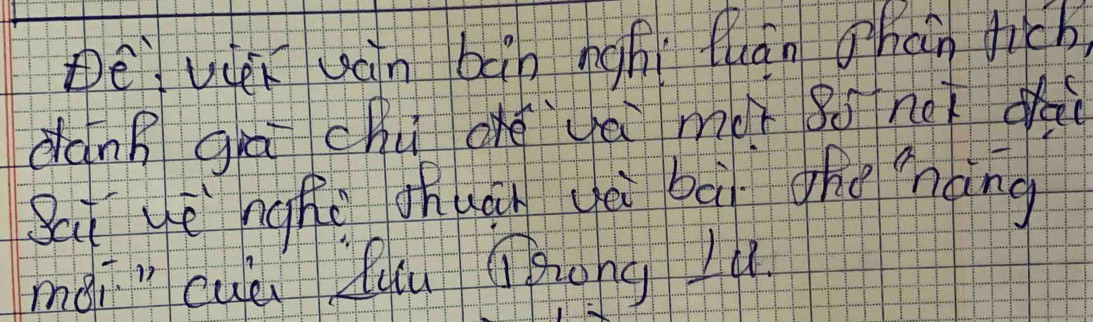 Đề: Viết văn bản nghị luận phân tích,
đánh giá chủ đề và một số nét đặc
sắc về nghệ thuật về bài thơ "nắng
mới" của Lưu Trọng Lư.